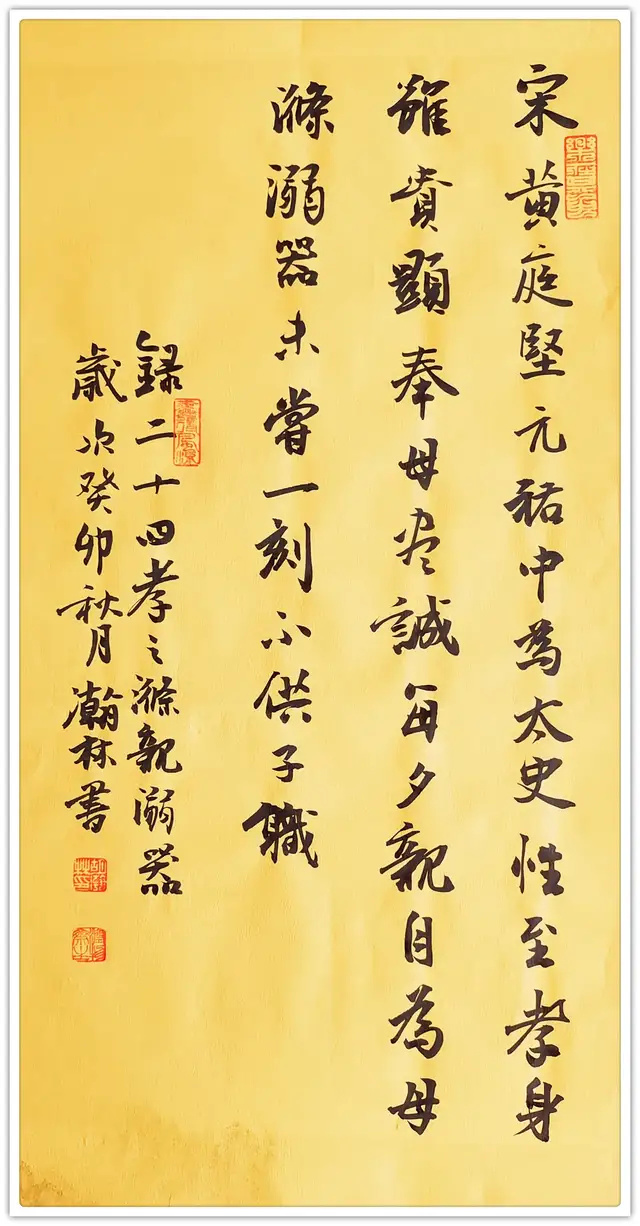 宋黄庭堅元祐中為太史性至孝身
雖貴顯奉母尽誠每夕親自為母
滌溺器未嘗一刻不供子職
録二十四孝之滌親溺器
歲次癸卯秋月瀚林書